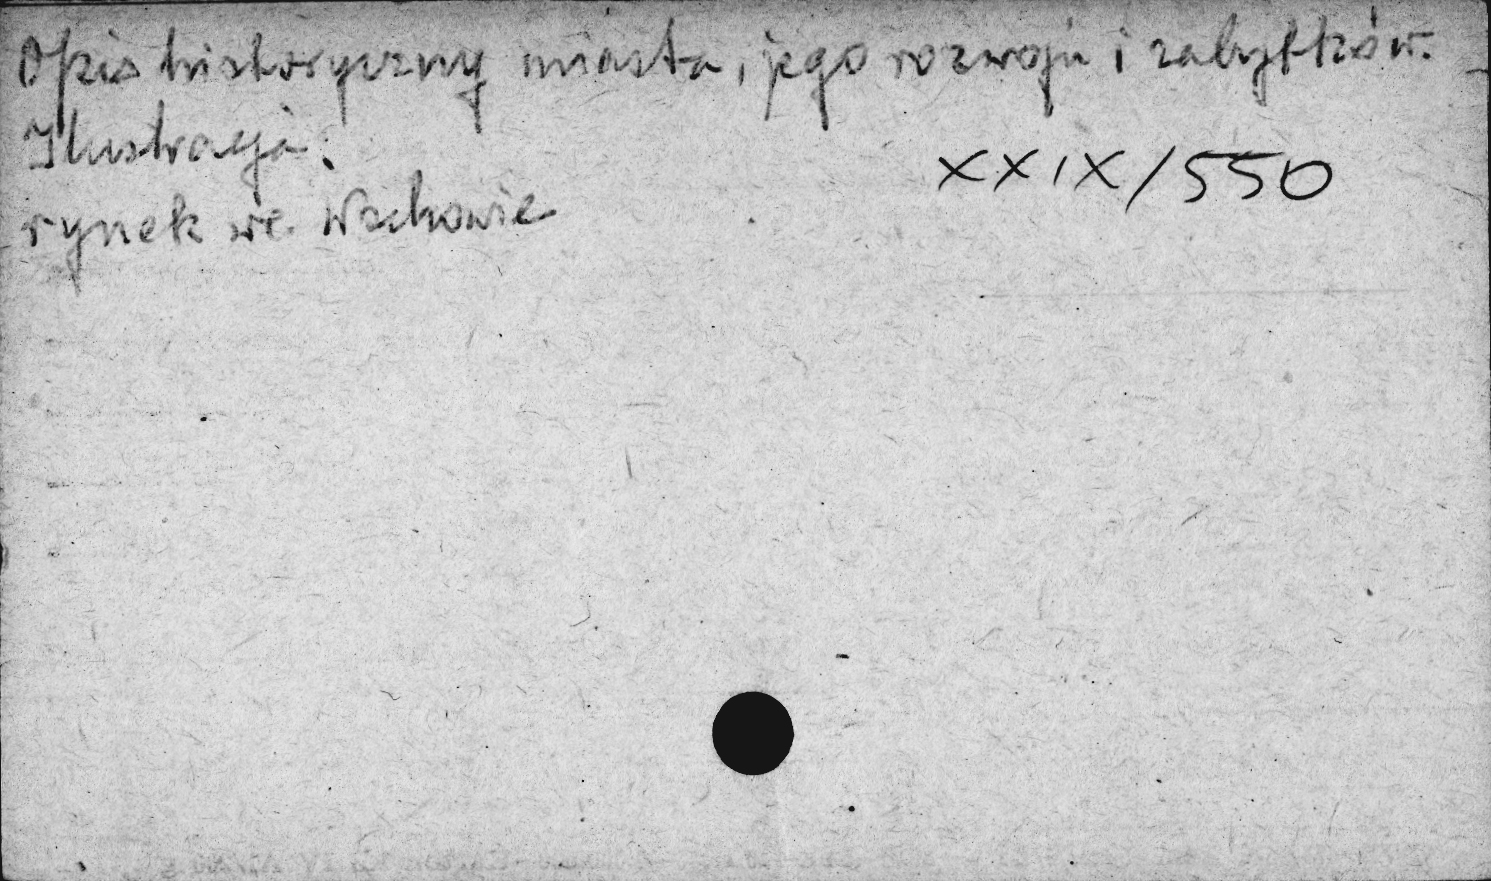 Opis historyczny miasta, jego rozwoju i zabytków.
Ilustracja:
XXIX/550
rynek we Wschowie